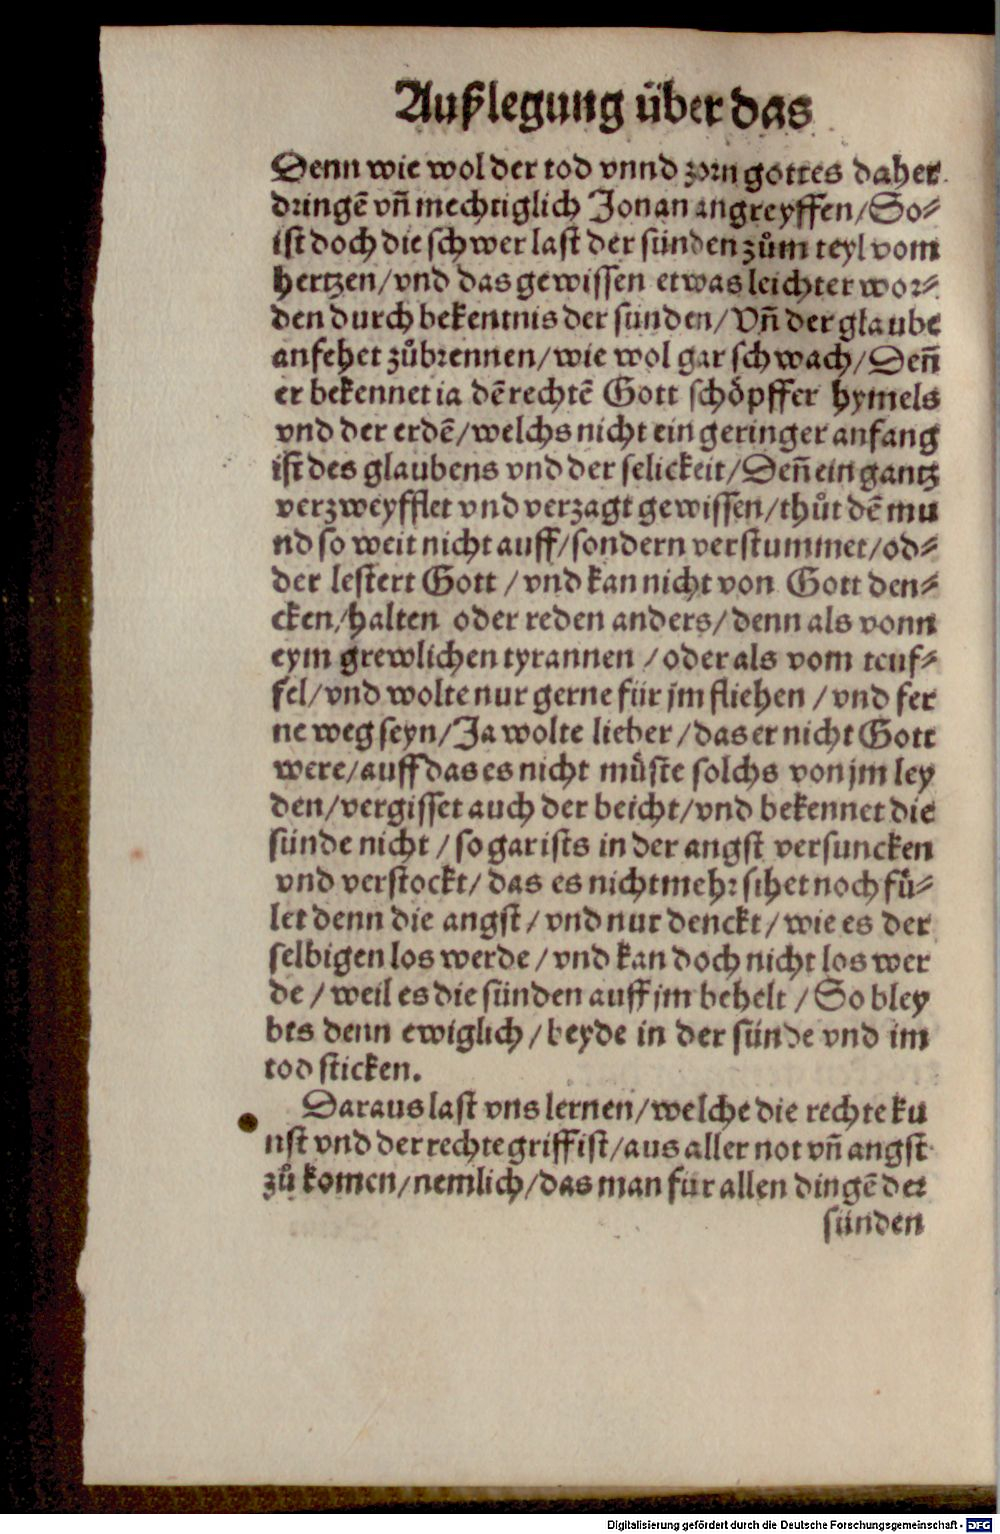 Außlegung über das
Denn wie wol der tod vnnd zorn gottes daher
dringē vn̄ mechtiglich Jonan angreyffen/So-
ist doch die schwer last der sünden zům teyl vom
hertzen/vnd das gewissen etwas leichter wor-
den durch bekentnis der sünden/Vn̄ der glaube
anfehet zůbrennen/wie wol gar schwach/Den̄
er bekennet ia dē rechtē Gott schöpffer hymels
vnd der erdē/welchs nicht ein geringer anfang
ist des glaubens vnd der selickeit/Den̄ ein gantz
verzweyfflet vnd verzagt gewissen/thůt dē mu
nd so weit nicht auff/sondern verstummet/od-
der lestert Gott/vnd kan nicht von Gott den-
cken/halten oder reden anders/denn als vonn
eym grewlichen tyrannen/oder als vom teuf-
fel/vnd wolte nur gerne für jm fliehen/vnd fer
ne weg seyn/Ja wolte lieber/das er nicht Gott
were/auff das es nicht müste solchs von jm ley
den/vergisset auch der beicht/vnd bekennet die
sünde nicht/so gar ists in der angst versuncken
vnd verstockt/das es nicht mehr sihet noch fü-
let denn die angst/vnd nur denckt/wie es der
selbigen los werde/vnd kan doch nicht los wer
de/weil es die sünden auff jm behelt/So bley
bts denn ewiglich/beyde in der sünde vnd im
tod sticken.
Daraus last vns lernen/welche die rechte ku
nst vnd der rechte griff ist/aus aller not vn̄ angst
zů komen/nemlich/das man für allen dingē der
sünden
Digitalisierung gefördert durch die Deutsche Forschungsgemeinschaft - DFG